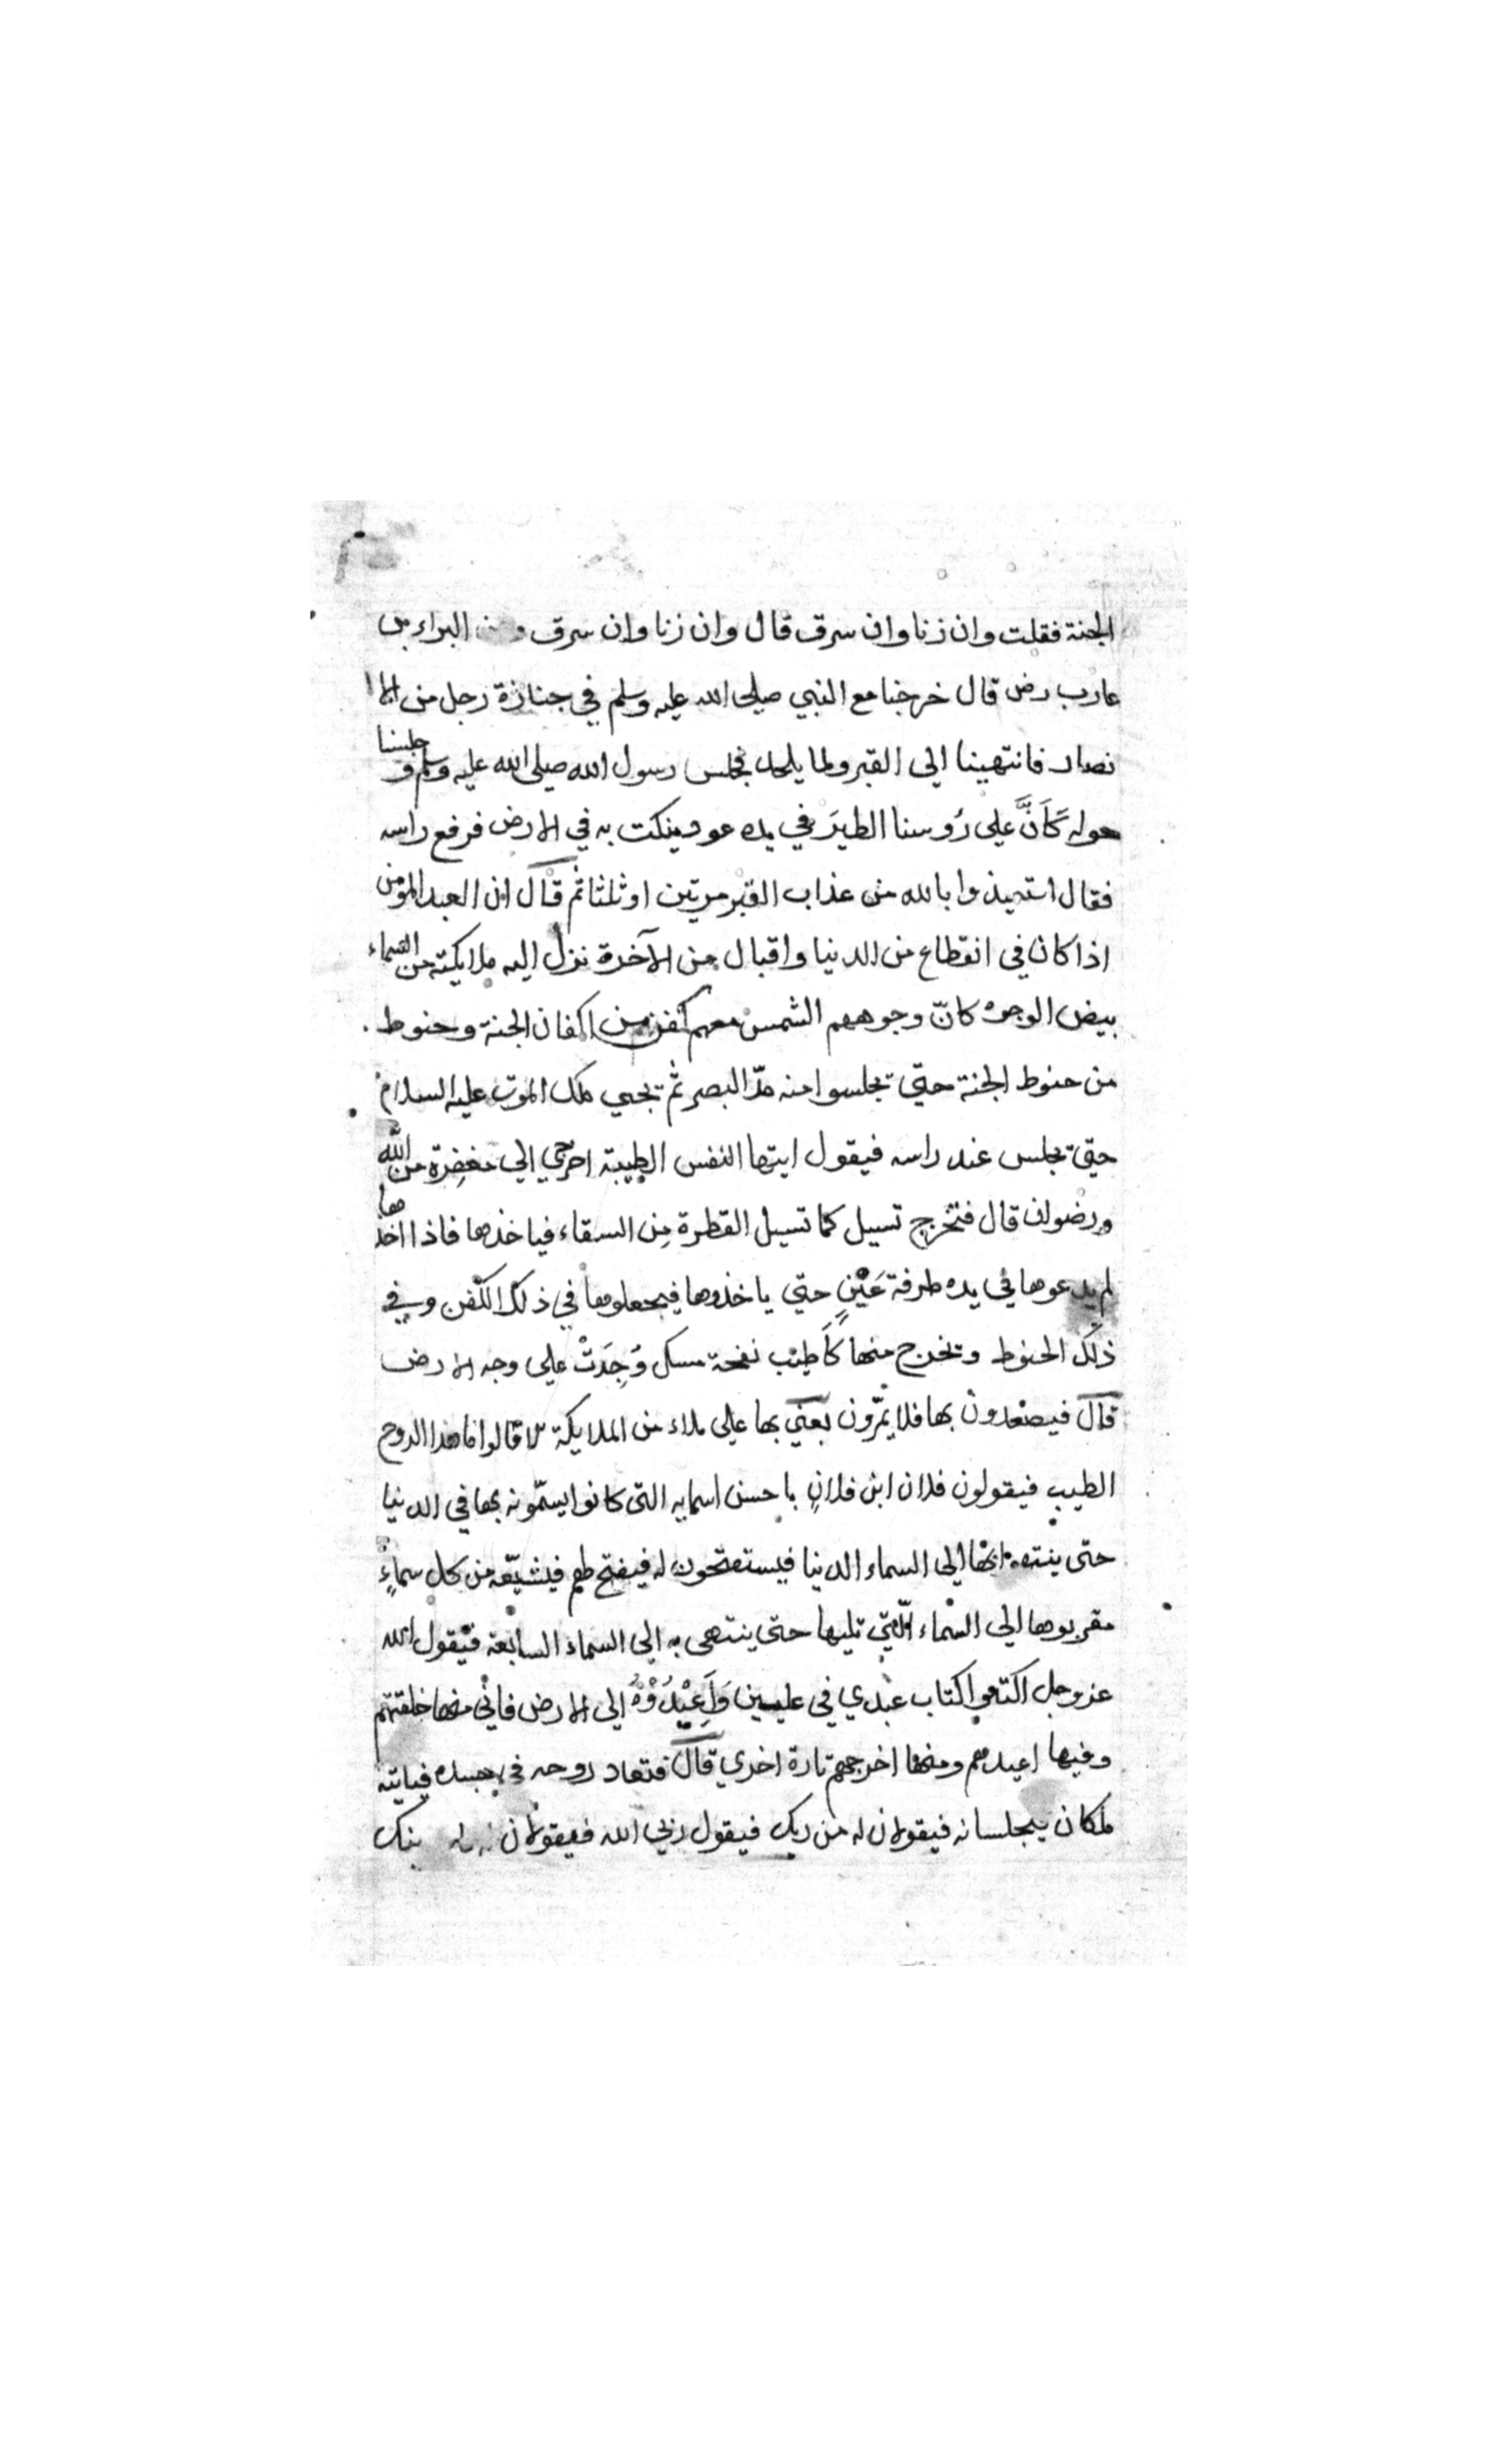 الجنة فقلت وان زنا وان سرق قال وان زنا وان سرق البراء بن
عازب رض قال خرجنا مع النبي صلى الله عليه وسلم في جنازة رجل من الا
نصار فانتهينا الى القبر ولما يلحد فجلس رسول الله صلى الله عليه وسلم وجلسنا
حوله كَاَنَّ على رُوسنا الطيرَ وفي يده عود ينكت به في الارض فرفع راسه
فقال استعيذوا بالله من عذاب القبر مرتين او ثلثا ثم قال ان العبد المؤمن
اذا كان في انقطاع من الدنيا واقبال من الآخرة نزل اليه ملايكة من السماء
بيض الوجوه كانّ وجوههم الشمس معهم كفن من اكفان الجنة وحنوط
من حنوط الجنة حتي يجلسوا منه مدّ البصر ثم يجيي ملك الموت عليه السلام
حتي يجلس عند راسه فيقول ايتها النفس الطيبة اخرجي الي مغفِرة من الله
ورضوان قال فتخرج تسيل كما تسيل القطرة مِن السقاء فياخذها فاذا اخذها
لم يدعوها في يده طرفة عَيْنٍ حتي ياخذوها فيجعلوها في ذلك الكفن وفي
ذلك الحنوط وتخرج منها كَاَطيَب نفحة مسك وُجِدَتْ علي وجه الارض
قال فيصعدون بها فلا يمّرون يعني بها علي ملاء من الملايكة الا قالوا ما هذا الروح
الطيب فيقولون فلان ابن فلانٍ باحسن اسمايه التي كانوا يسمّونه بها في الدنيا
حتى ينتهوا بها الي السماء الدنيا فيستفتحون له فيفتح لهم فيشيّعه من كل سماءٍ
مقربوها الى السماء الّتي تليها حتى ينتهى به الى السماء السابعة فيقول الله
عز وجل اكتبوا كتاب عبدي في عليين وَاَعِيْدُوْهُ الي الارض فاني منها خلقتهم
وفيها اعيدهم ومنها اخرجهم تارة اخري قال فتعاد روحه في جسده فياتيه
ملكان يجلسانه فيقولان له من ربك فيقول ربي الله فيقولان